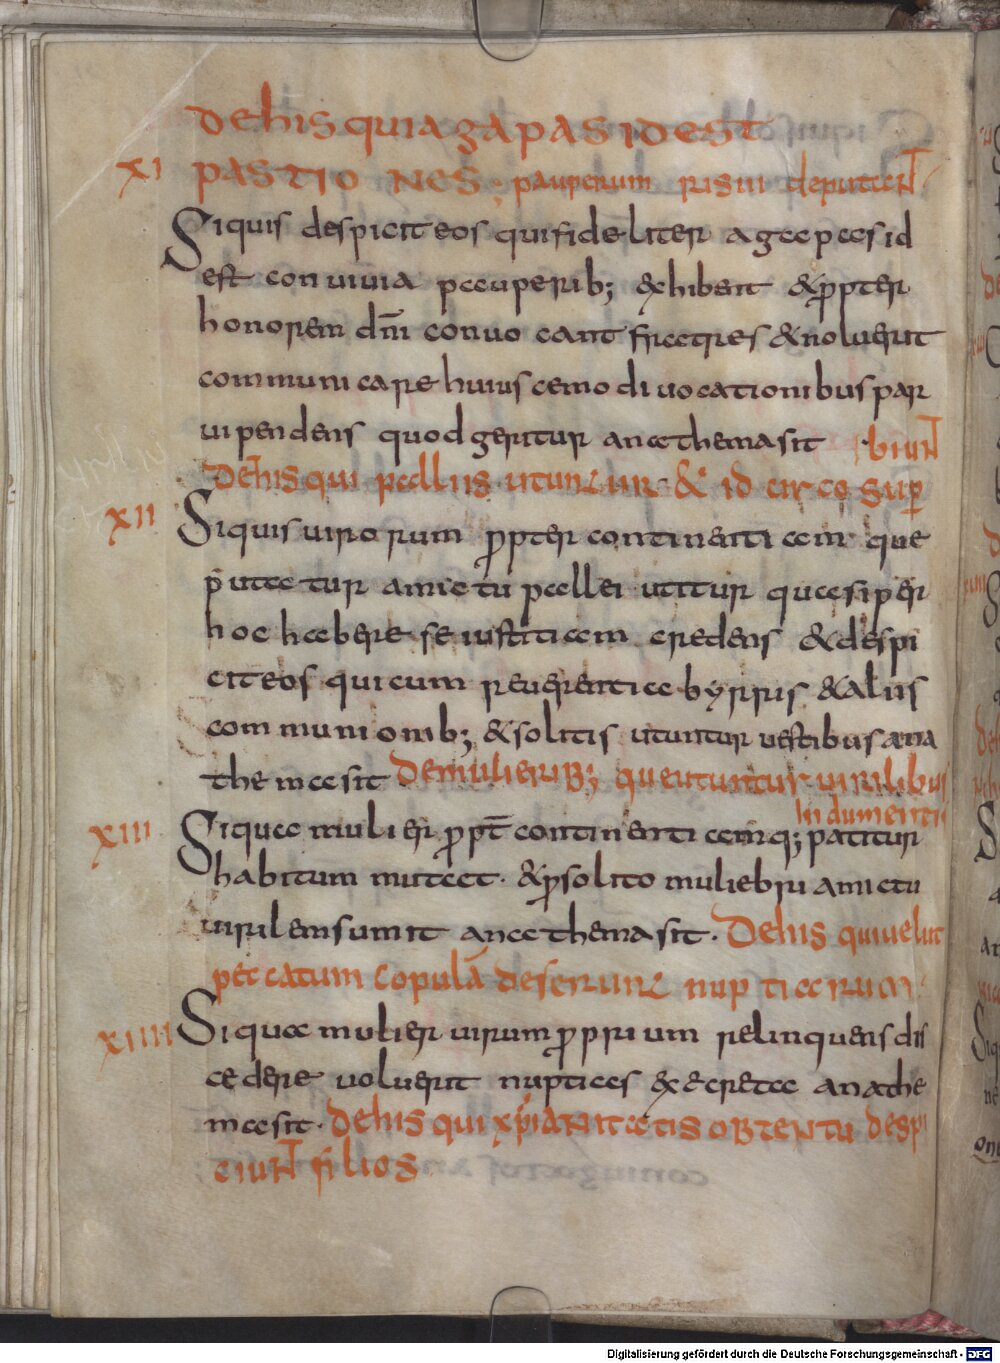 De his qui agapas id est
XI pastiones pauperum risui deputant
Si quis despicit eos qui fideliter agapas id
est convivia pauperib; exhibent & propter
honorem dni convocant fratres & noluerit
communicare huiuscemodi vocationibus par
vipendens quod geritur anathema sit
De his qui palliis utuntur & id circo sup biunt
XII Si quis virorum propter continentiam que
putatur amictu pallei utitur quasi per
hoc habere se iustitiam credens & despi
cit eos qui cum reverentia byrris & aliis
communionib; & solitis utuntur vestibus ana
thema sit De mulierib; que utuntur virilibus
indumenti
XIII Si qua mulier propt continentiam q; patitur
habitum mutat & pro solito muliebri amictu
virilem sumit anathema sit De his qui velut
peccatum copulā deserunt nuptiarum
XIIII Si qua mulier virum proprium relinquens dis
cedere voluerit nuptias execrata anathe
ma sit De his qui xpianitatis obtentu despi
ciunt filios
Digitalisierung gefördert durch die Deutsche Forschungsgemeinschaft - DFG